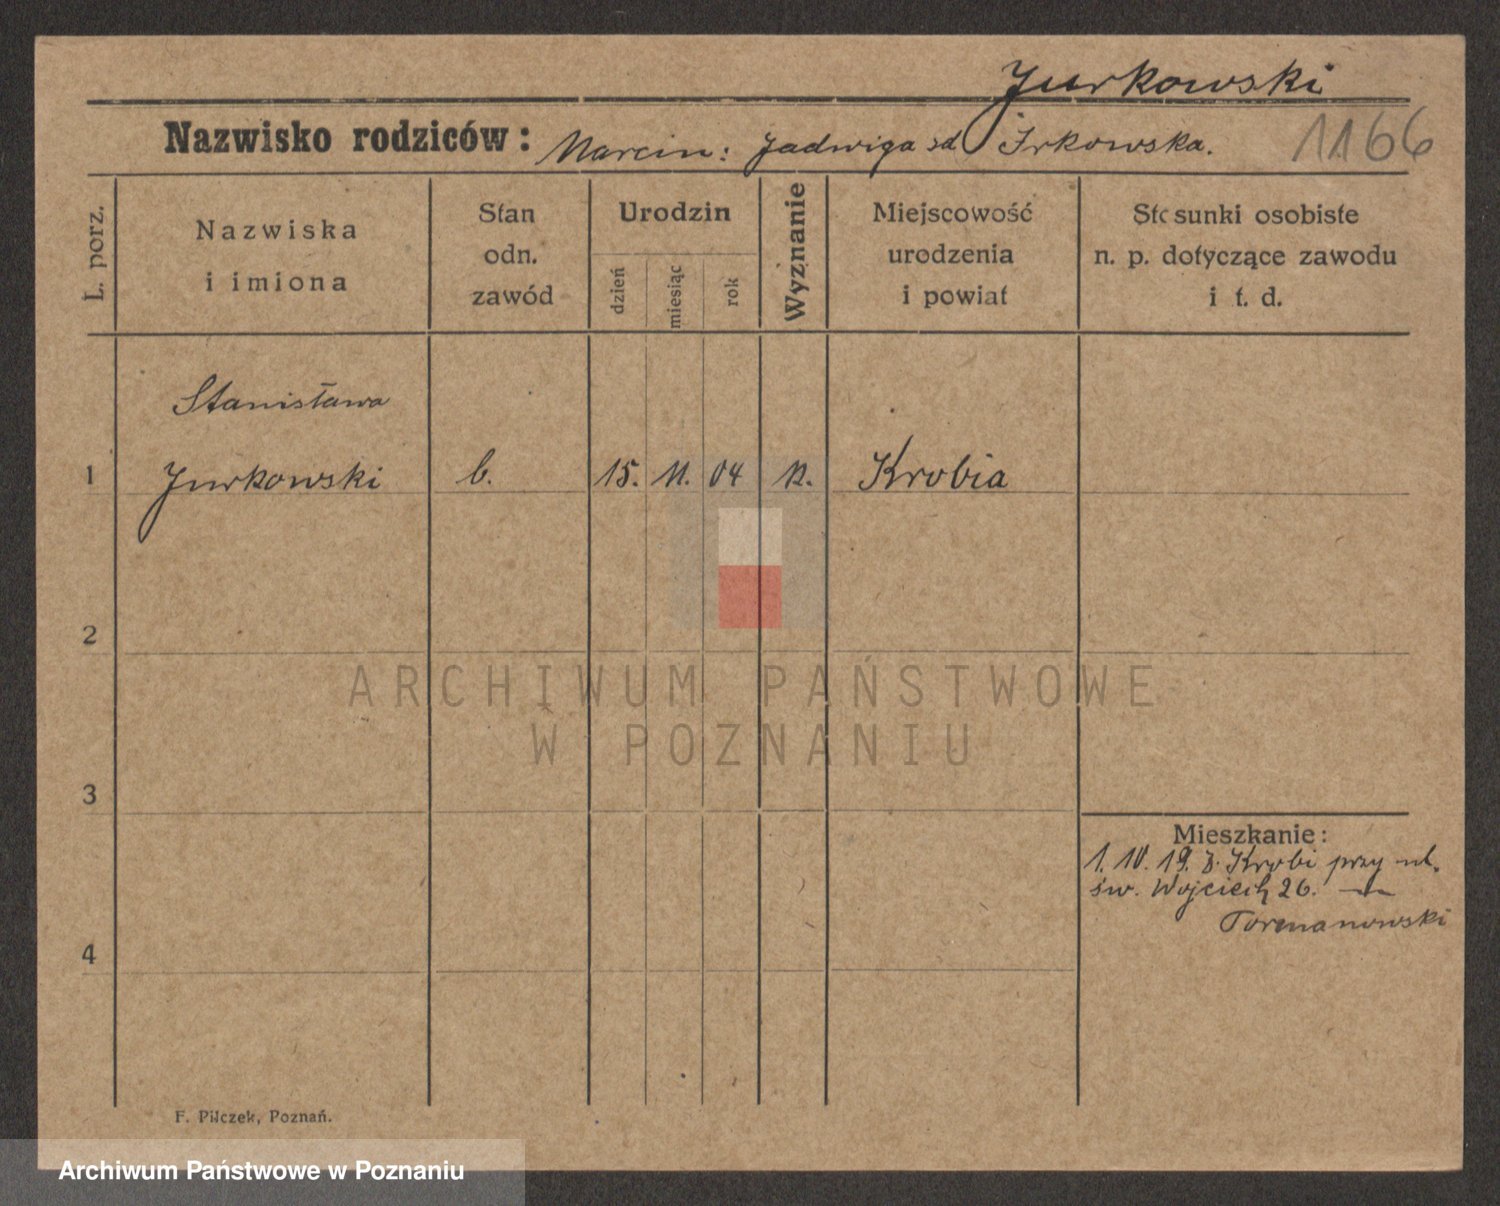 Jurkowski
Nazwisko rodziców: Marcin: Jadwiga zd Irkowska.
1166
L. porz.
Nazwiska
i imiona
Stan
odn.
zawód
Urodzin
dzień
miesiąc
rok
Wyznanie
Miejscowość
urodzenia
i powiat
Stosunki osobiste
n. p. dotyczące zawodu
i t. d.
Stanisława
1 Jurkowski b. 15. 11. 04 Krobia
2
ARCHIWUM PAŃSTWOWE
W POZNANIU
3
Mieszkanie:
1. 10. 19. z. Krobi przy ul.
św. Wojciech 26.
4
F. Pilczek, Poznań.
Archiwum Państwowe w Poznaniu